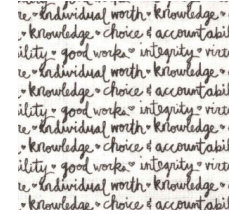 e ♥ individual worth ♥ knowledge ♥
♥ knowledge ♥ choice & accountabil
ility ♥ good works ♥ integrity ♥ virt
e ♥ individual worth ♥ knowledge ♥
knowledge ♥ choice & accountabil
ility ♥ good works ♥ integrity ♥ virt
e ♥ individual worth ♥ knowledge ♥
knowledge ♥ choice & accountabil
ility ♥ good works ♥ integrity ♥ virt
e ♥ individual worth ♥ knowledge ♥
♥ knowledge ♥ choice & accountabil